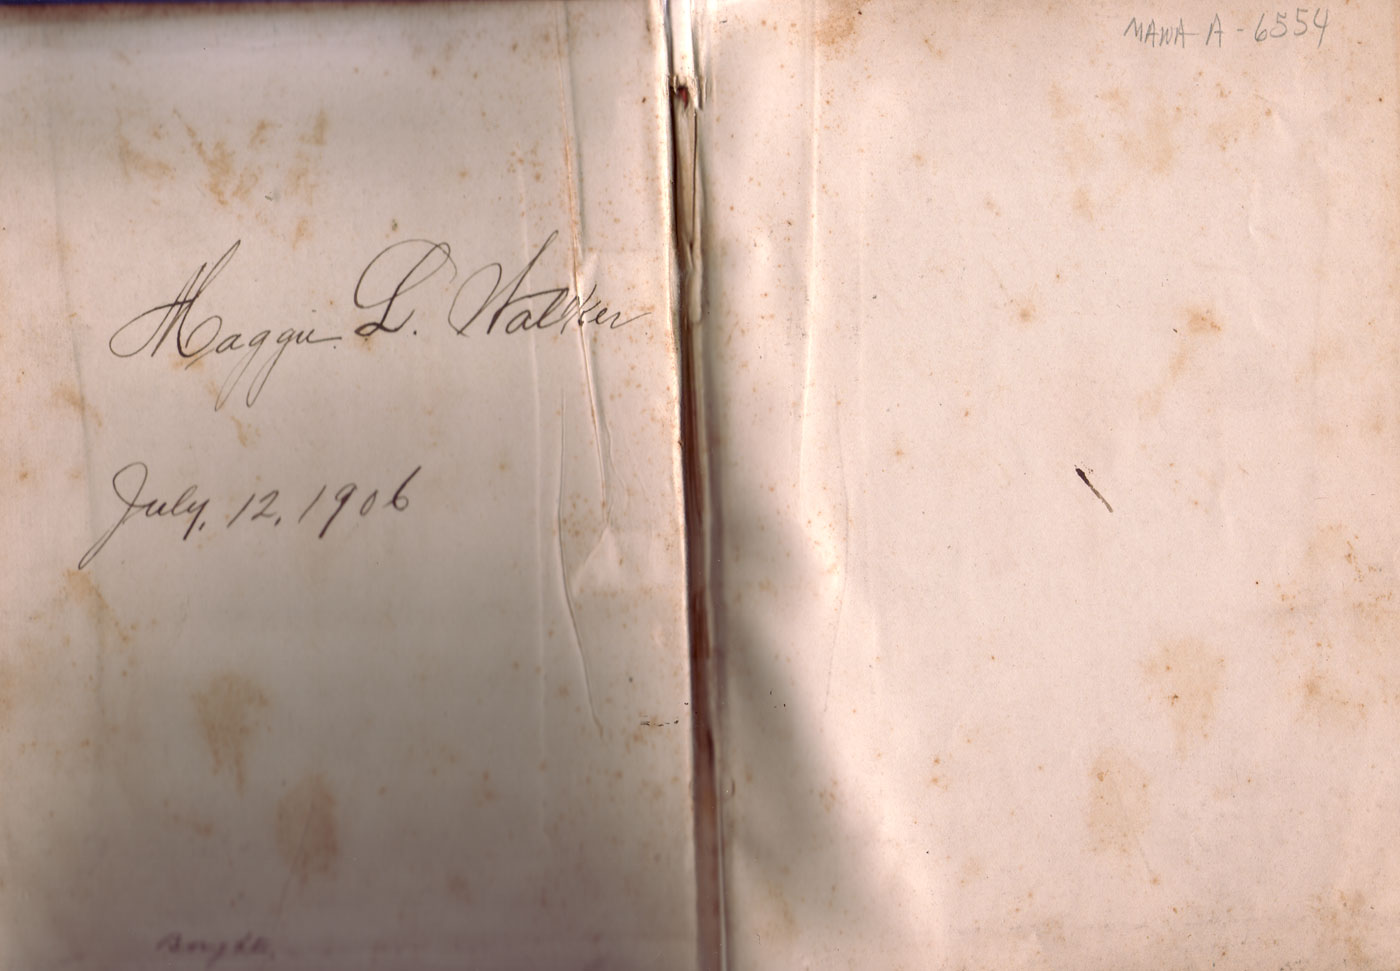 Maggie L. Walker
July, 12, 1906
MAWA A-6554